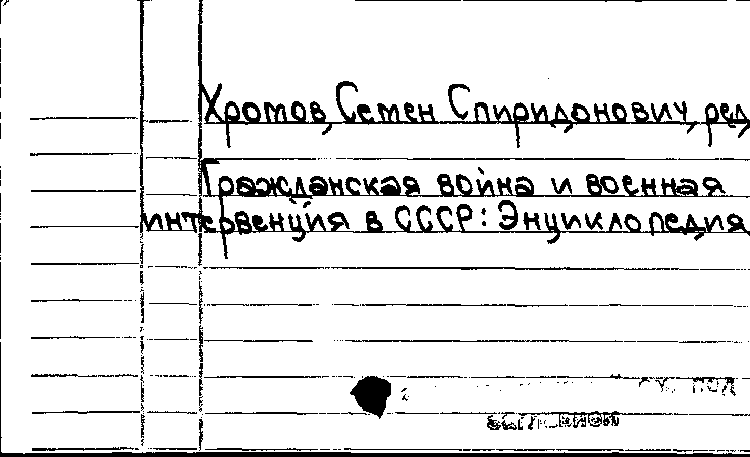 Хромов, Семен Спиридонович, ред
Гражданская война и военная
интервенция в СССР: Энциклопедия
под
заглавием